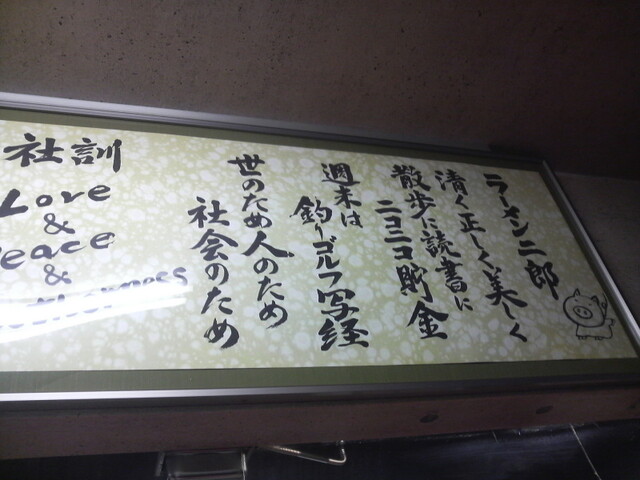 ラーメン二郎
清く正しく美しく
散歩に読書に
ニコニコ貯金
週末は
釣りゴルフ写経
世のため人のため
社会のため
社訓
Love
&
Peace
&